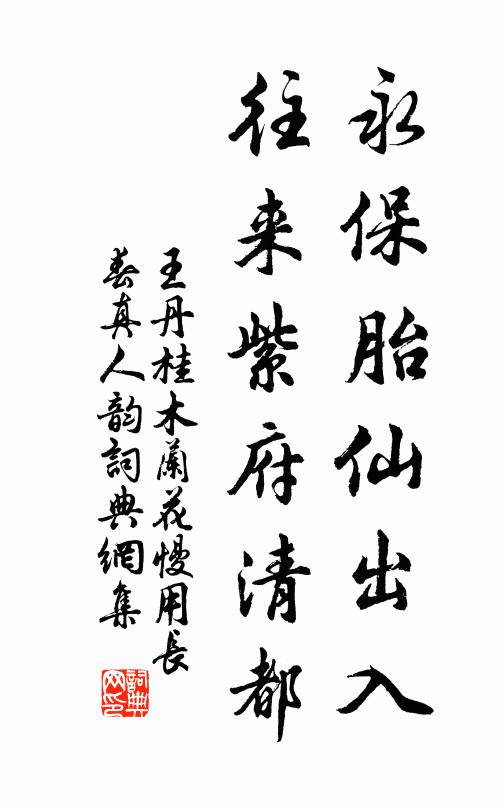 永保胎仙出入
往来紫府清都
王丹桂木蘭花慢用長
春真人韵詞典網集
詞典
网印